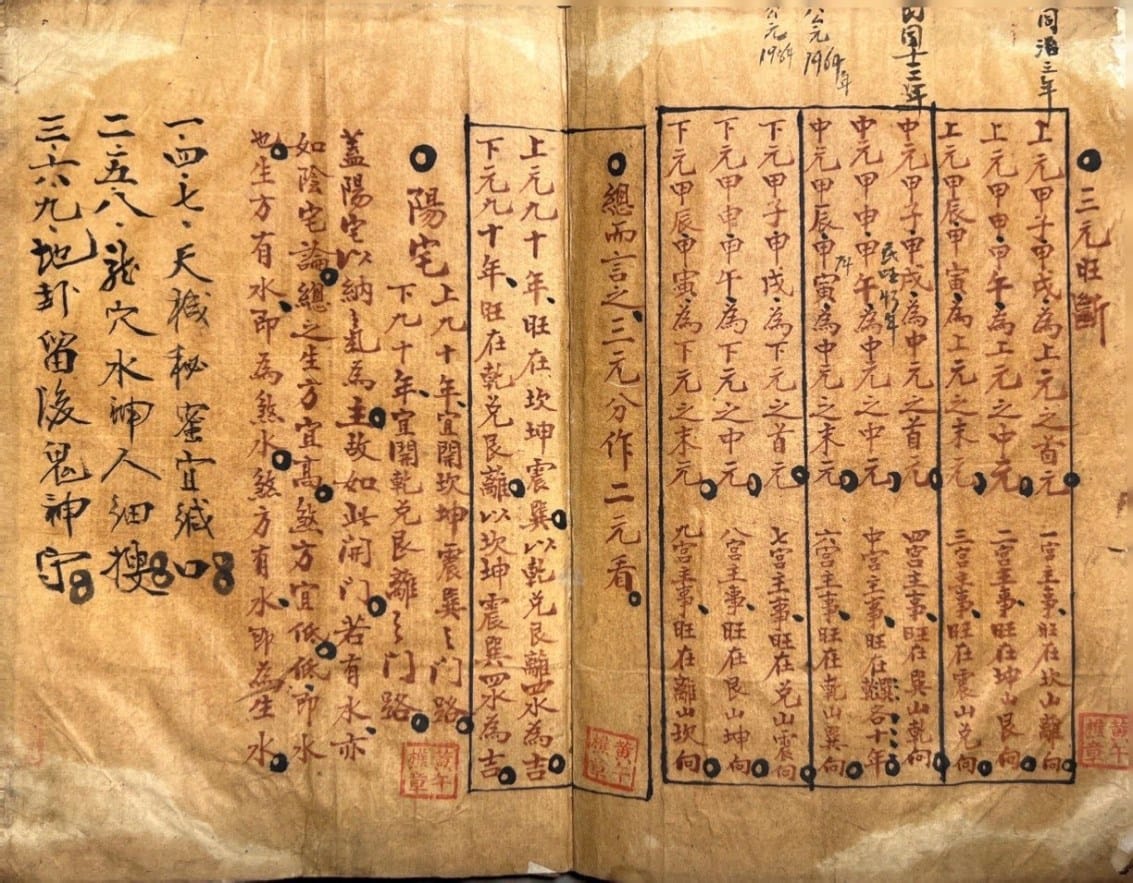 同治三年
民國十三年
公元1964年
公元1984
三元旺斷
上元甲子·甲戌·為上元之首元 一宮主事·旺在坎山離向
上元甲申·甲午·為上元之中元 二宮主事·旺在坤山艮向
上元甲辰甲寅為上元之末元 三宮主事·旺在震山兌向
中元甲子·甲戌·為中元之首元 四宮主事·旺在巽山乾向
中元甲申·甲午·為中元之中元 中宮主事·旺在乾巽各十年
中元甲辰·甲寅·為中元之末元 六宮主事旺在乾山巽向
下元甲子甲戌·為下元之首元 七宮主事旺在兌山震向
下元甲申甲午為下元之中元 八宮主事·旺在艮山坤向
下元甲辰甲寅為下元之末元 九宮主事旺在離山坎向
總而言之、三元分作二元看
上元九十年、旺在坎坤震巽以乾兌艮離四水為吉
下元九十年、旺在乾兌艮離以坎坤震巽四水為吉
黃午
權章
陽宅
上九十年、宜開坎坤震巽之门路
下九十年、宜開乾兌艮離之门路
蓋陽宅以納之氣為主故如此開门若有水、亦
如陰宅論總之生方宜高煞方宜低低即水
也生方有水即為煞水煞方有水即為生水
黃午
權章
一·四·七·天機秘密宜緘口
二·五八·龍穴水神人細搜
三·六九·地卦留後鬼神守
黃午
權章